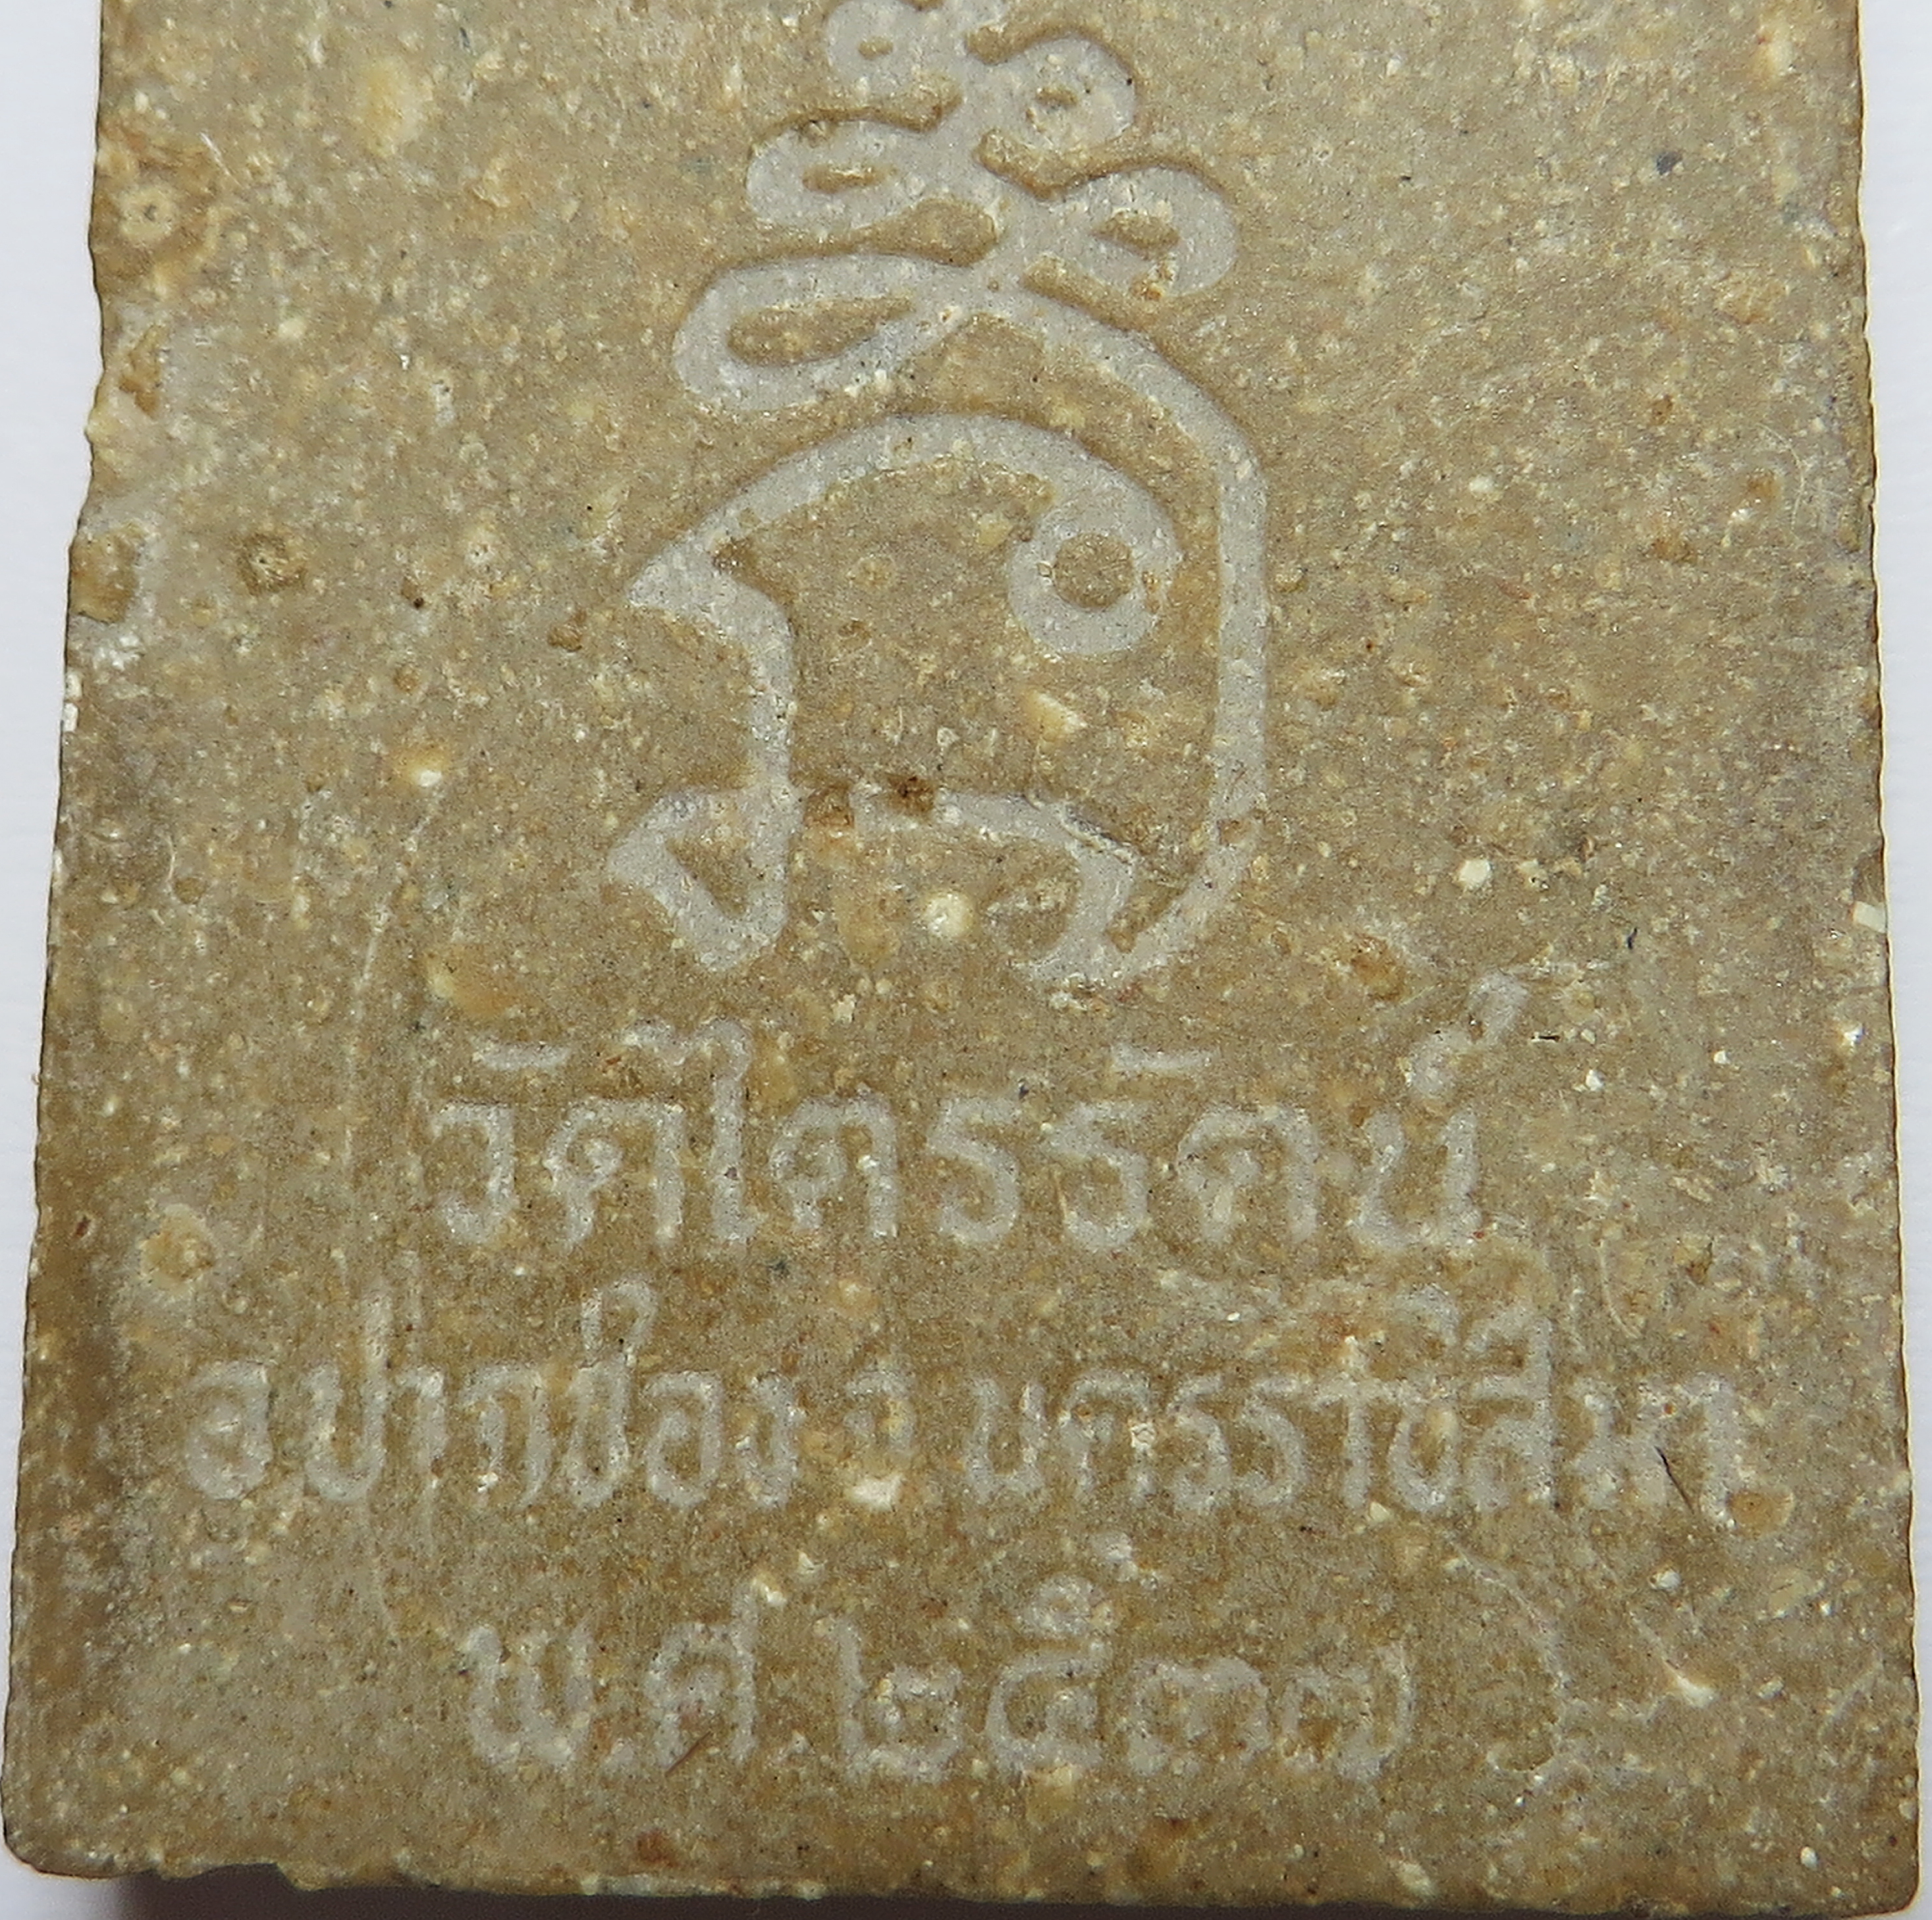 วัดไตรรัตน์
อ.ปากช่อง จ.นครราชสีมา
พ.ศ.๒๕๓๗